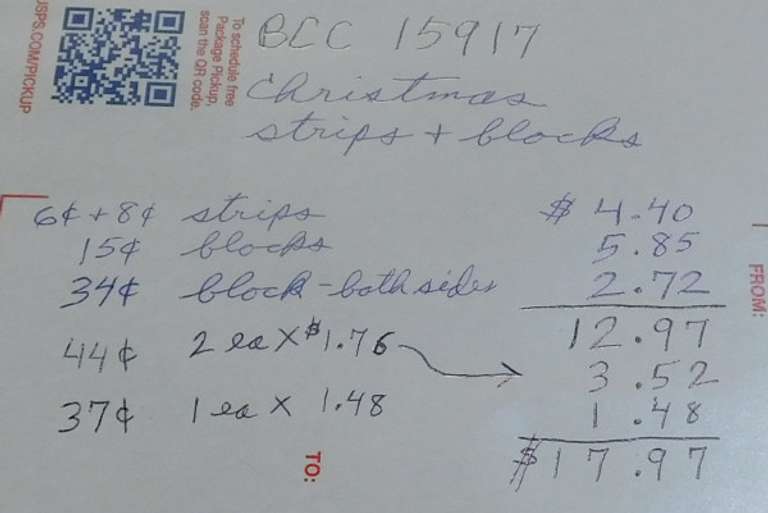 USPS.COM/PICKUP
To schedule free
Package Pickup,
scan the QR code.
BCC 15917
Christmas
strips + blocks
6¢ + 8¢ strips $ 4.40
15¢ blocks 5.85
34¢ block - both sides 2.72
12.97
44¢ 2 ea X $1.76 3.52
37¢ 1 ea X 1.48 1.48
$17.97
TO:
FROM: